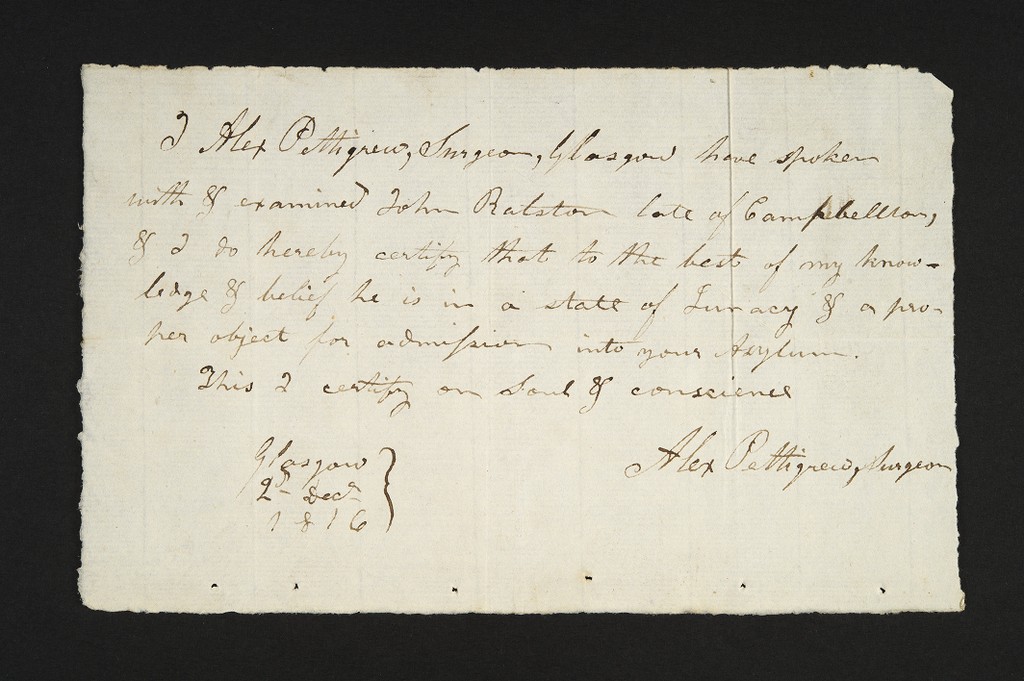 I Alex Pettigrew, Surgeon, Glasgow have spoken
with & examined John Ralston late of Campbellton,
& I do hereby certify that to the best of my know-
ledge & belief he is in a state of Lunacy & a pro-
per object for admission into your Asylum.
This I certify on Soul & conscience
Alex Pettigrew, Surgeon
Glasgow
2d Decr
1816